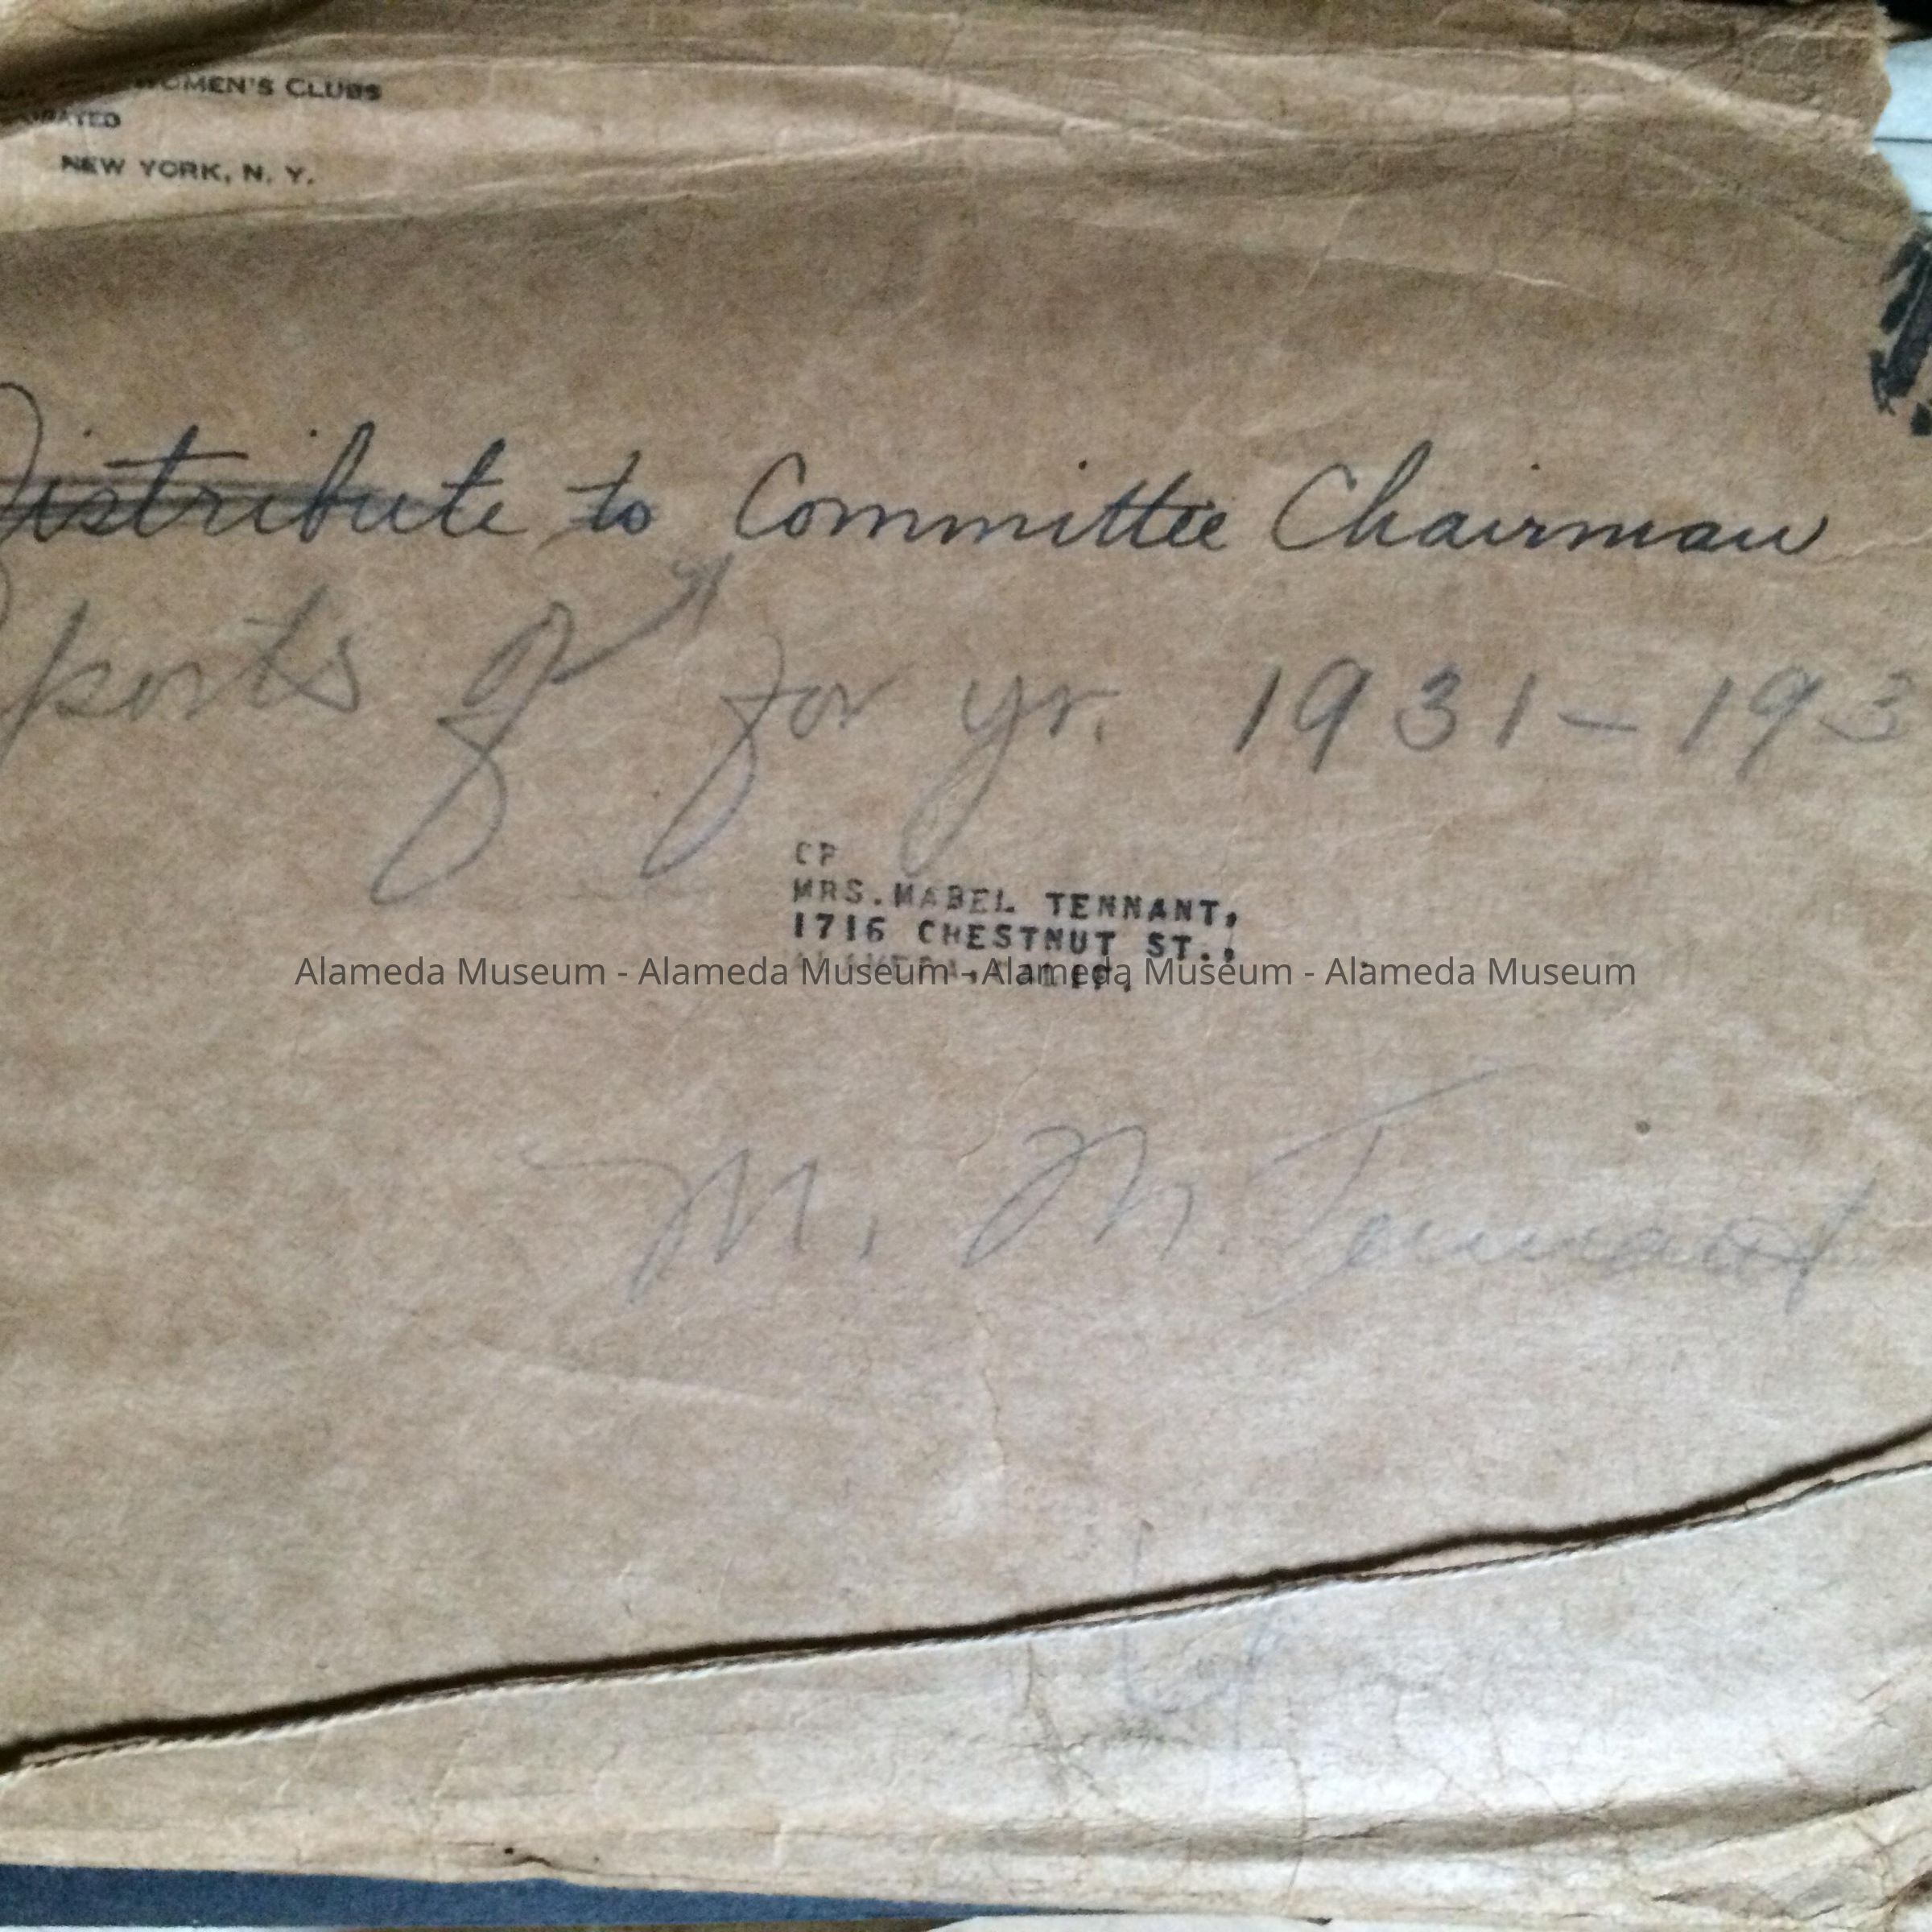 WOMEN'S CLUBS
NEW YORK, N. Y.
Distribute to Committee Chairman
ports of for yr. 1931-193
CP
MRS. MABEL TENNANT,
1716 CHESTNUT ST.,
ALAMEDA, CALIF.
Alameda Museum - Alameda Museum - Alameda Museum - Alameda Museum
M. M. Tennant